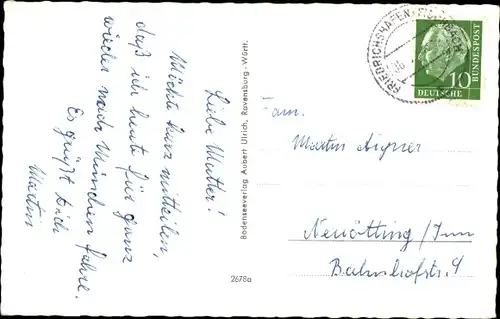 Liebe Mutter!
Möchte kurz mitteilen,
daß ich heute für ganz
wieder nach München fahre.
Es grüßt Dich
Martin
Bodenseeverlag Aubert Ulrich, Ravensburg-Württ.
2678a
FRIEDRICHSHAFEN
10
DEUTSCHE
BUNDESPOST
Fam.
Martin Aigner
Neuötting/Inn
Bahnhofstr. 4